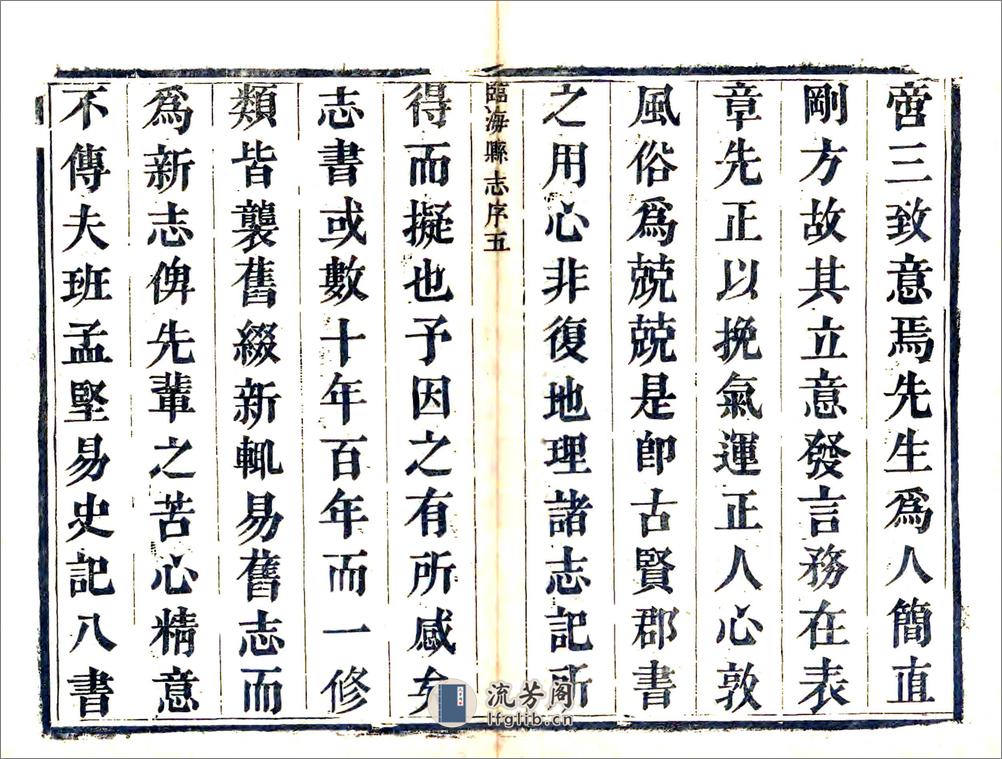 啻三致意焉先生爲人簡直
剛方故其立意發言務在表
章先正以挽氣運正人心敦
風俗爲兢兢是卽古賢郡書
之用心非復地理諸志記所
臨海縣志序五
得而擬也予因之有所感矣
志書或數十年百年而一修
類皆襲舊綴新輒易舊志而
爲新志俾先輩之苦心精意
不傳夫班孟堅易史記八書
流芳阁
lfglib.cn